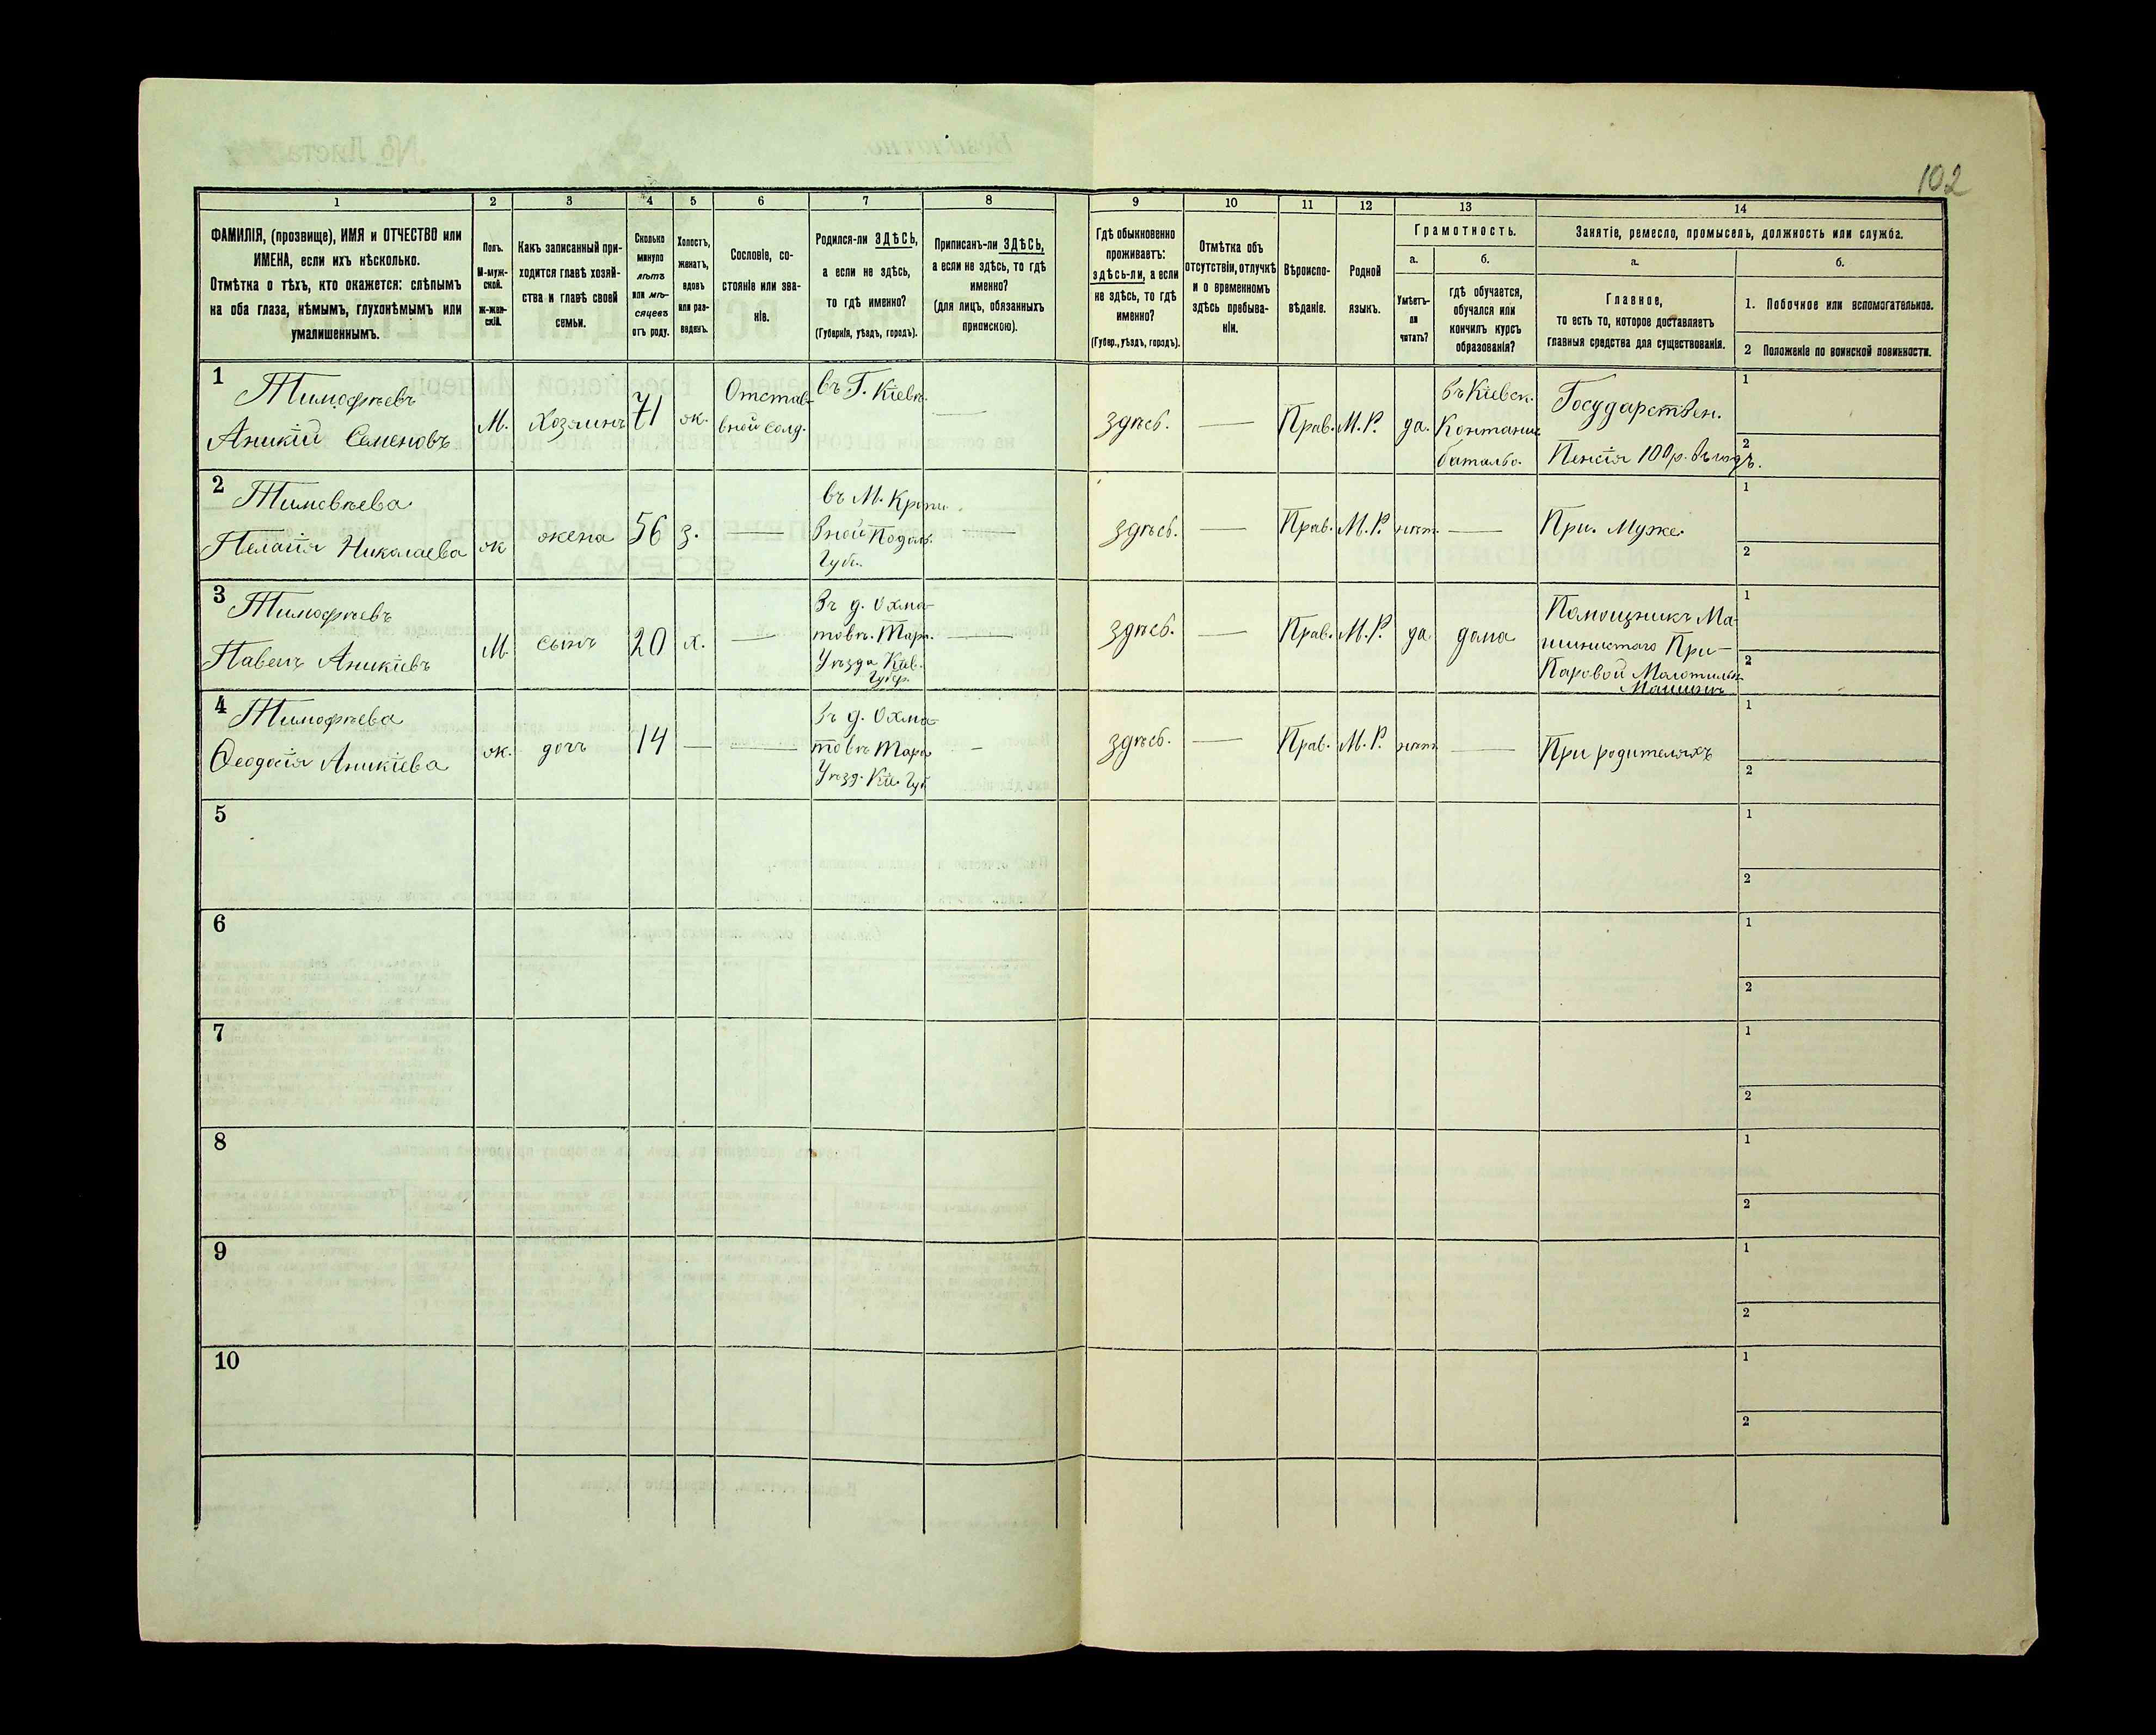 102
1 2 3 4 5 6 7 8 9 10 11 12 13 14
ФАМИЛІЯ, (прозвище), ИМЯ и ОТЧЕСТВО или
ИМЕНА, если ихъ нѣсколько.
Отмѣтка о тѣхъ, кто окажется: слѣпымъ
на оба глаза, нѣмымъ, глухонѣмымъ или
умалишеннымъ.
Полъ.
М-муж-
ской.
ж-жен-
скій.
Какъ записанный при-
ходится главѣ хозяй-
ства и главѣ своей
семьи.
Сколько
минуло
лѣтъ
или мѣ-
сяцевъ
отъ роду.
Холостъ,
женатъ,
вдовъ
или раз-
веденъ.
Сословіе, со-
стояніе или зва-
ніе.
Родился-ли ЗДѢСЬ,
а если не здѣсь,
то гдѣ именно?
(Губернія, уѣздъ, городъ).
Приписанъ-ли ЗДѢСЬ,
а если не здѣсь, то гдѣ
именно?
(для лицъ, обязанныхъ
припискою).
Гдѣ обыкновенно
проживаетъ:
здѣсь-ли, а если
не здѣсь, то гдѣ
именно?
(Губер., уѣздъ, городъ).
Отмѣтка объ
отсутствіи, отлучкѣ
и о временномъ
здѣсь пребыва-
ніи.
Вѣроиспо-
вѣданіе.
Родной
языкъ.
Грамотность.
а.
Умѣетъ-
ли
читать?
б.
гдѣ обучается,
обучался или
кончилъ курсъ
образованія?
Занятіе, ремесло, промыселъ, должность или служба.
а.
Главное,
то есть то, которое доставляетъ
главныя средства для существованія.
б.
1. Побочное или вспомогательное.
2 Положеніе по воинской повинности.
1
Тимофѣевъ
Аникій Семеновъ
М.
Хозяинъ
71
ж.
Отстав-
вной солд.
въ Г. Кіевѣ.
здѣсь.
Прав.
М.Р.
да.
въ Кіевск.
батальо.
Государствен.
Пенсія 100 р. въ годъ.
1
2
2
Тимовѣева
Пелагія Николаева
ж
жена
56
з.
въ М.
Подоль.
Губ.
здѣсь.
Прав.
М.Р.
нѣт.
При. Муже.
1
2
3
Тимофѣевъ
Павелъ Аникіевъ
М.
сынъ
20
х.
Въ д. Охма-
товѣ. Тара.
Уѣзда Кіев.
Губер.
здѣсь.
Прав.
М.Р.
да
дома
Помощникъ Ма-
шинистаго При-
Паровой Молотильн.
Машинѣ
1
2
4
Тимофѣева
Ѳеодосія Аникіева
ж.
дочь
14
Въ д. Охма-
товѣ Тара
Уѣзд. Кіе. Губ
здѣсь.
Прав.
М.Р.
нѣт
При родителяхъ
1
2
5
1
2
6
1
2
7
1
2
8
1
2
9
1
2
10
1
2